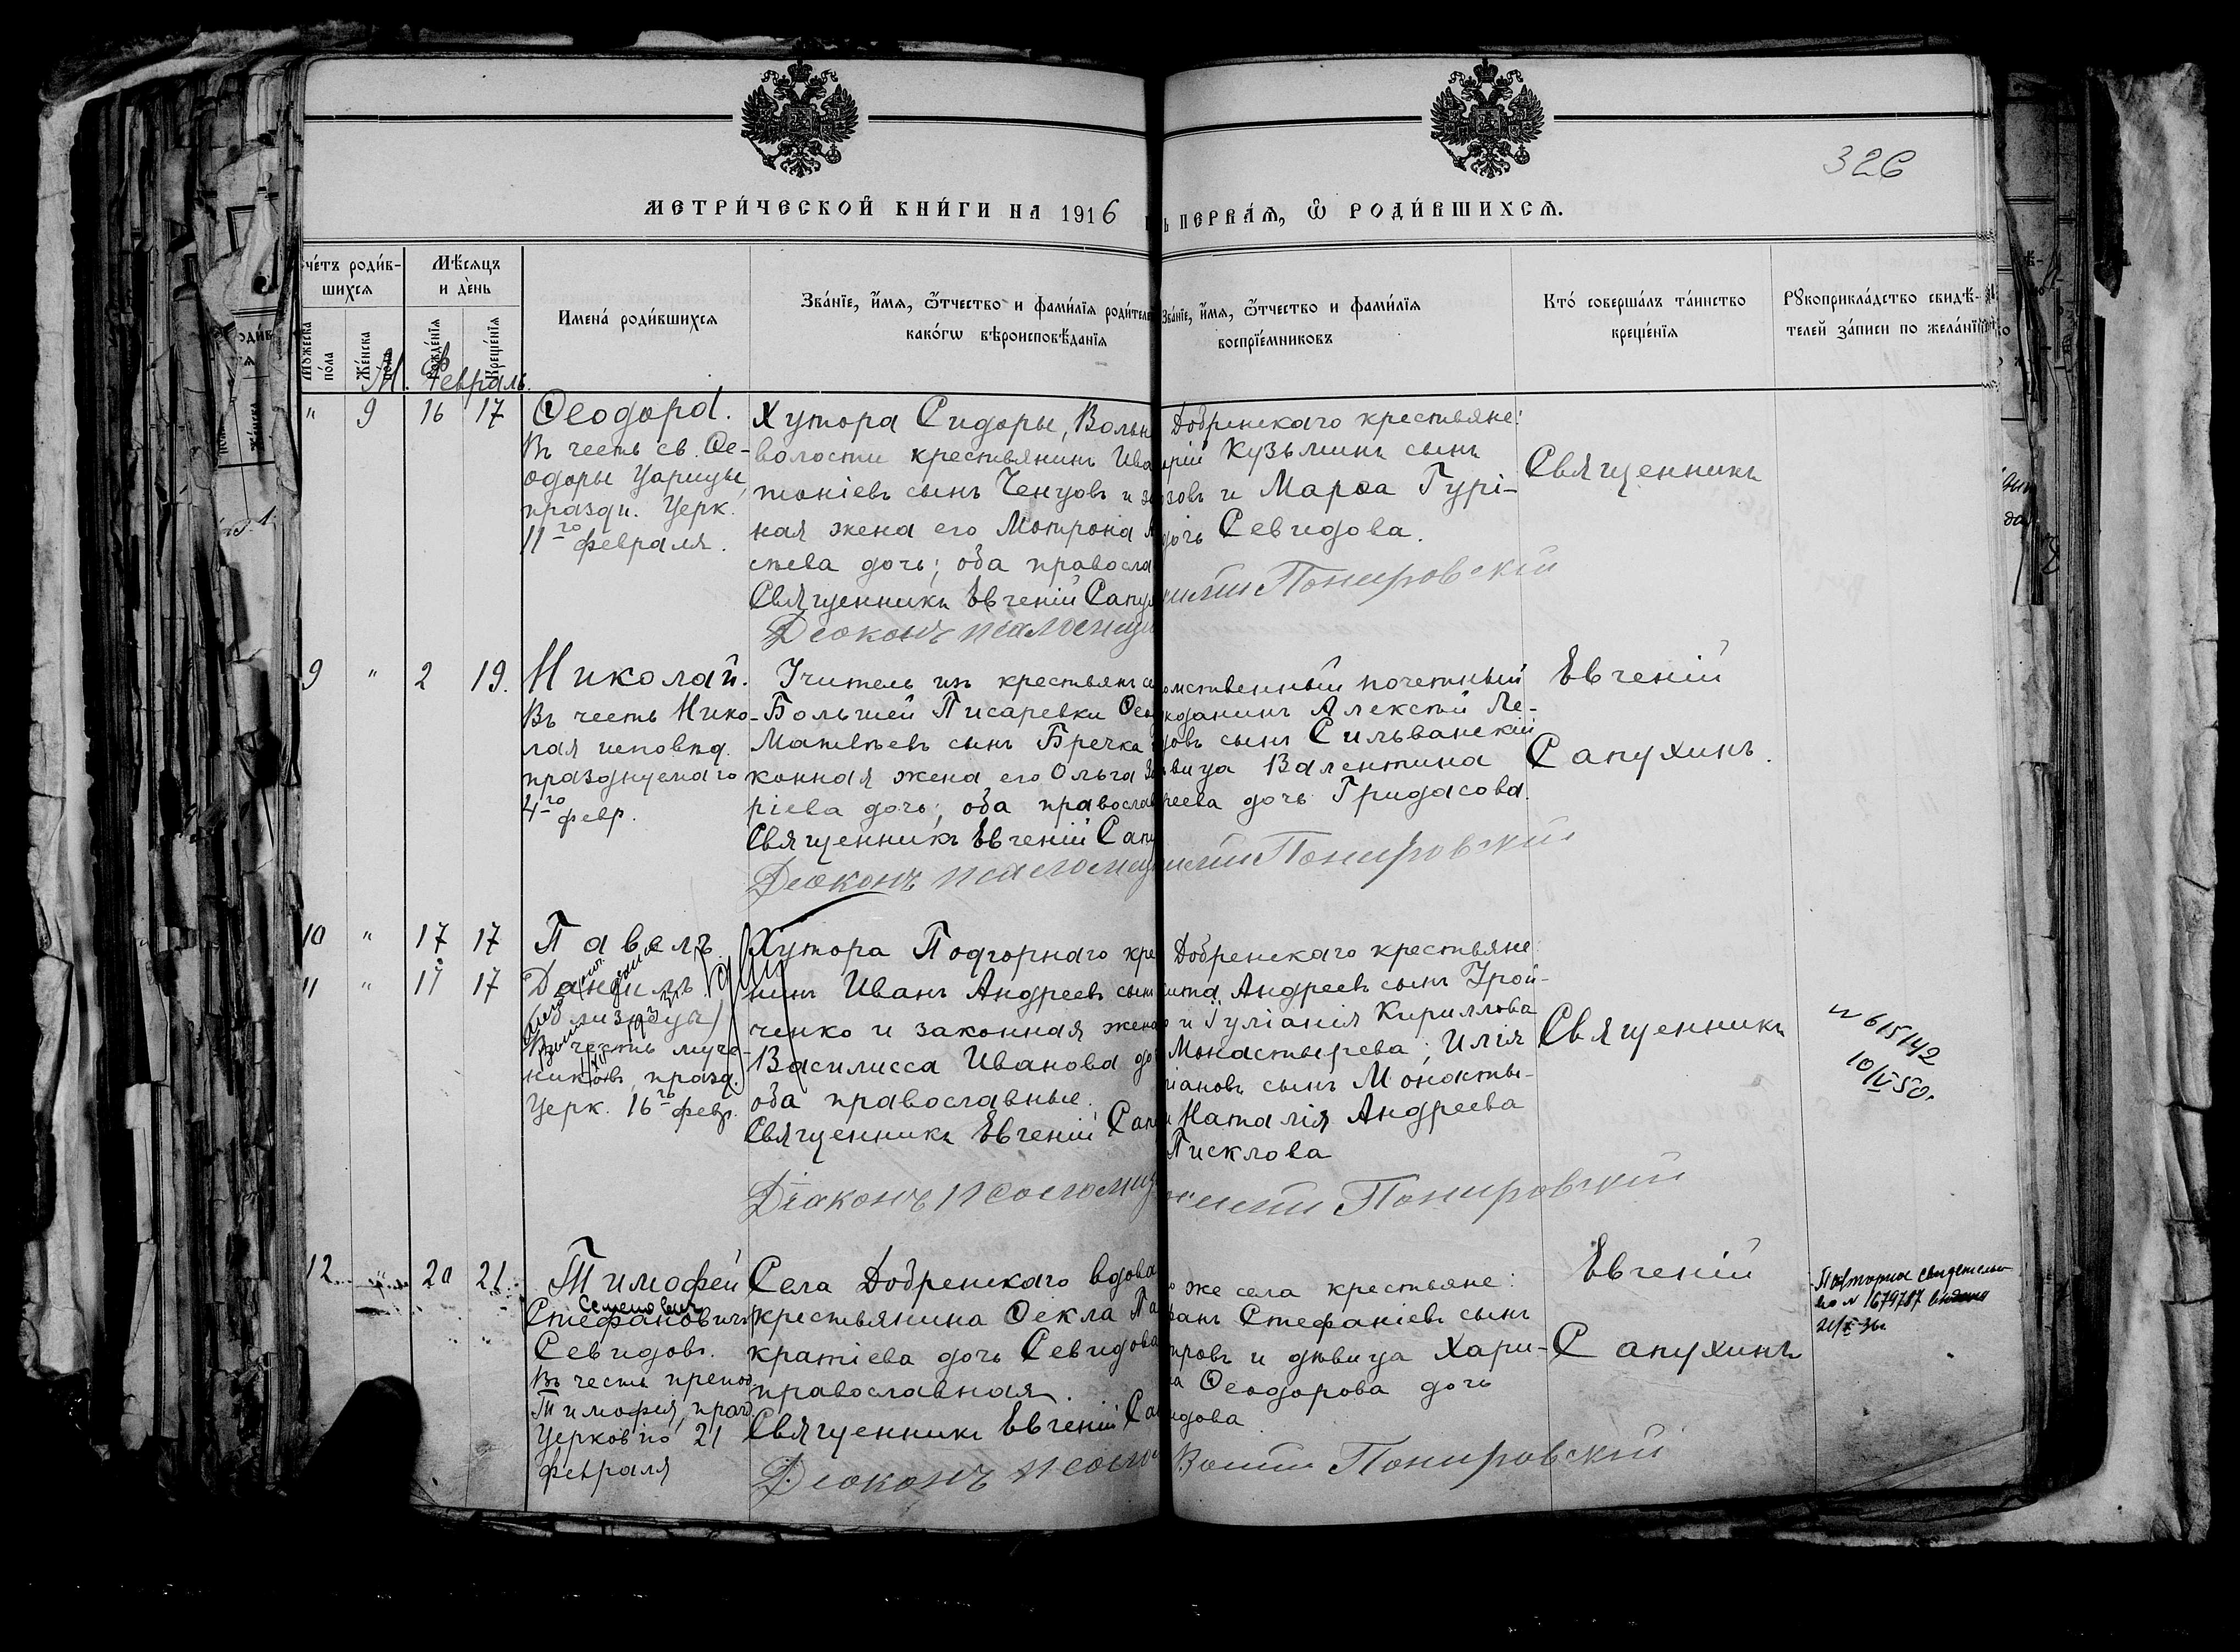 326
МЕТРИ́ЧЕСКОЙ КНИ́ГИ НА 1916
ПЕРВАЯ, Ѡ РОДИ́ВШИХСЯ.
счетъ роди́в-
шихся
Мѣсяцъ
и день
Имена́ роди́вшихся
Зва́нїе, и҆́мя, ѻ҆́тчество и фами́лїя роди́теле
како́гѡ вѣроисповѣ́данїя
Зва́нїе, и҆́мя, ѻ҆́тчество и фами́лїя
воспрїе́мниковъ
Кто́ соверша́лъ та́инство
креще́нїя
Рꙋкоприкла́дство свидѣ́-
телей за́писи по жела́нїю
Мꙋжеска
по́ла
Же́нска
по́ла
Рожде́нїя
Креще́нїя
М. Февраль.
" 9 16 17
Ѳеодора.
Въ честь св. Ѳе-
одоры Царицы,
праздн. Церк.
11го февраля.
Хутора Сидоры, Вольн
волости крестьянинъ Ива
тоніевъ сынъ Ченцовъ и за
ная жена его Мотрона
стева дочь; оба правосла
Священникъ Евгеній Сапу
Діаконъ псаломщи
Добренскаго крестьяне:
орій Кузьминъ сынъ
зовъ и Марѳа Гурі-
дочь Севидова.
Понировскій
Священникъ
9 " 2 19.
Николай.
Въ честь Нико-
лая исповѣд.
празднуемаго
4го февр.
Учитель изъ крестьянъ с
Большей Писаревки Ѳео
Матвѣевъ сынъ Бречка
конная жена его Ольга
ріева дочь; оба православ
Священникъ Евгеній Сапу
Діаконъ псаломщ
омственный почетный
жданинъ Алексѣй Ле-
довъ сынъ Сильванскій
ѣвица Валентина
реева дочь Гридасова.
Понировскій
Евгеній
Сапухинъ.
10 " 17 17
Павелъ.
11 " 17 17
Даніилъ
(близнецы)
Въ честь муче-
никовъ, празд.
Церк. 16го февр.
Хутора Подгорнаго кре
нинъ Иванъ Андреевъ сынъ
ченко и законная жена
Василисса Иванова до
оба православные.
Священникъ Евгеній Сапу
Діаконъ псаломщ
Добренскаго крестьяне:
Андреевъ сынъ Трой-
о и Іуліанія Кириллова
Монастырева; Илія
іановъ сынъ Монасты-
и Наталія Андреева
Писклова
Понировскій
Священникъ
N 615142
10/IV 50г.
12 " 20 21
Тимофей
Семенович
Стефановичъ
Севидовъ.
Въ честь препод.
Тимофея, празд.
Церковію 21
февраля
Села Добренскаго вдова
крестьянина Ѳекла Па
кратіева дочь Севидова
православная.
Священникъ Евгеній Са
Діаконъ псало
же села крестьяне:
ванъ Стефаніевъ сынъ
тровъ и дѣвица Хари-
на Ѳеодорова дочь
идова
Понировскій
Евгеній
Сапухинъ
Повторное свидетельс-
во N 1679787 выдано